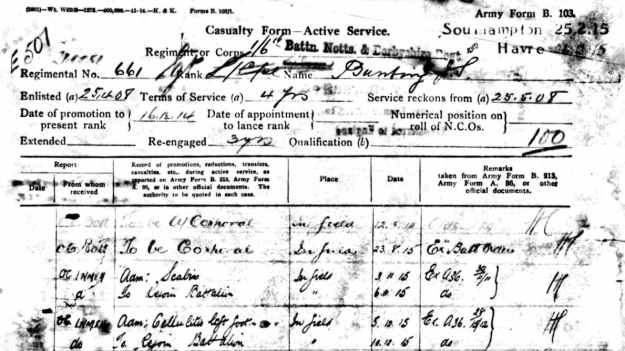 Forms B. 103/1.
Army Form B. 103.
Casualty Form—Active Service.
Southampton 25.2.15
Havre
Regiment or Corps 1/6th Battn. Notts. &
Regimental No. 661 Rank L/Cpl Name Bunting
Enlisted (a) 25.4.08 Terms of Service (a) 4 yrs Service reckons from (a) 25.5.08
Date of promotion to present rank 16.12.14 Date of appointment to lance rank Numerical position on roll of N.C.Os.
Extended Re-engaged 3yrs Qualification (b) 100
Report
Date
From whom received
Record of promotions, reductions, transfers, casualties, etc., during active service, as reported on Army Form B. 213, Army Form A. 36, or in other official documents. The authority to be quoted in each case.
Place
Date
Remarks taken from Army Form B. 213, Army Form A. 36, or other official documents.
To be Corporal In field
To be Corporal In field 23.8.15
Adm: Scabies In field 3.11.15 Ex A36.
To rejoin Battalion " 6.11.15 do
Adm: Cellulitis left foot In field 5.12.15 Ex. A36.
do To rejoin Battalion " 10.12.15 do